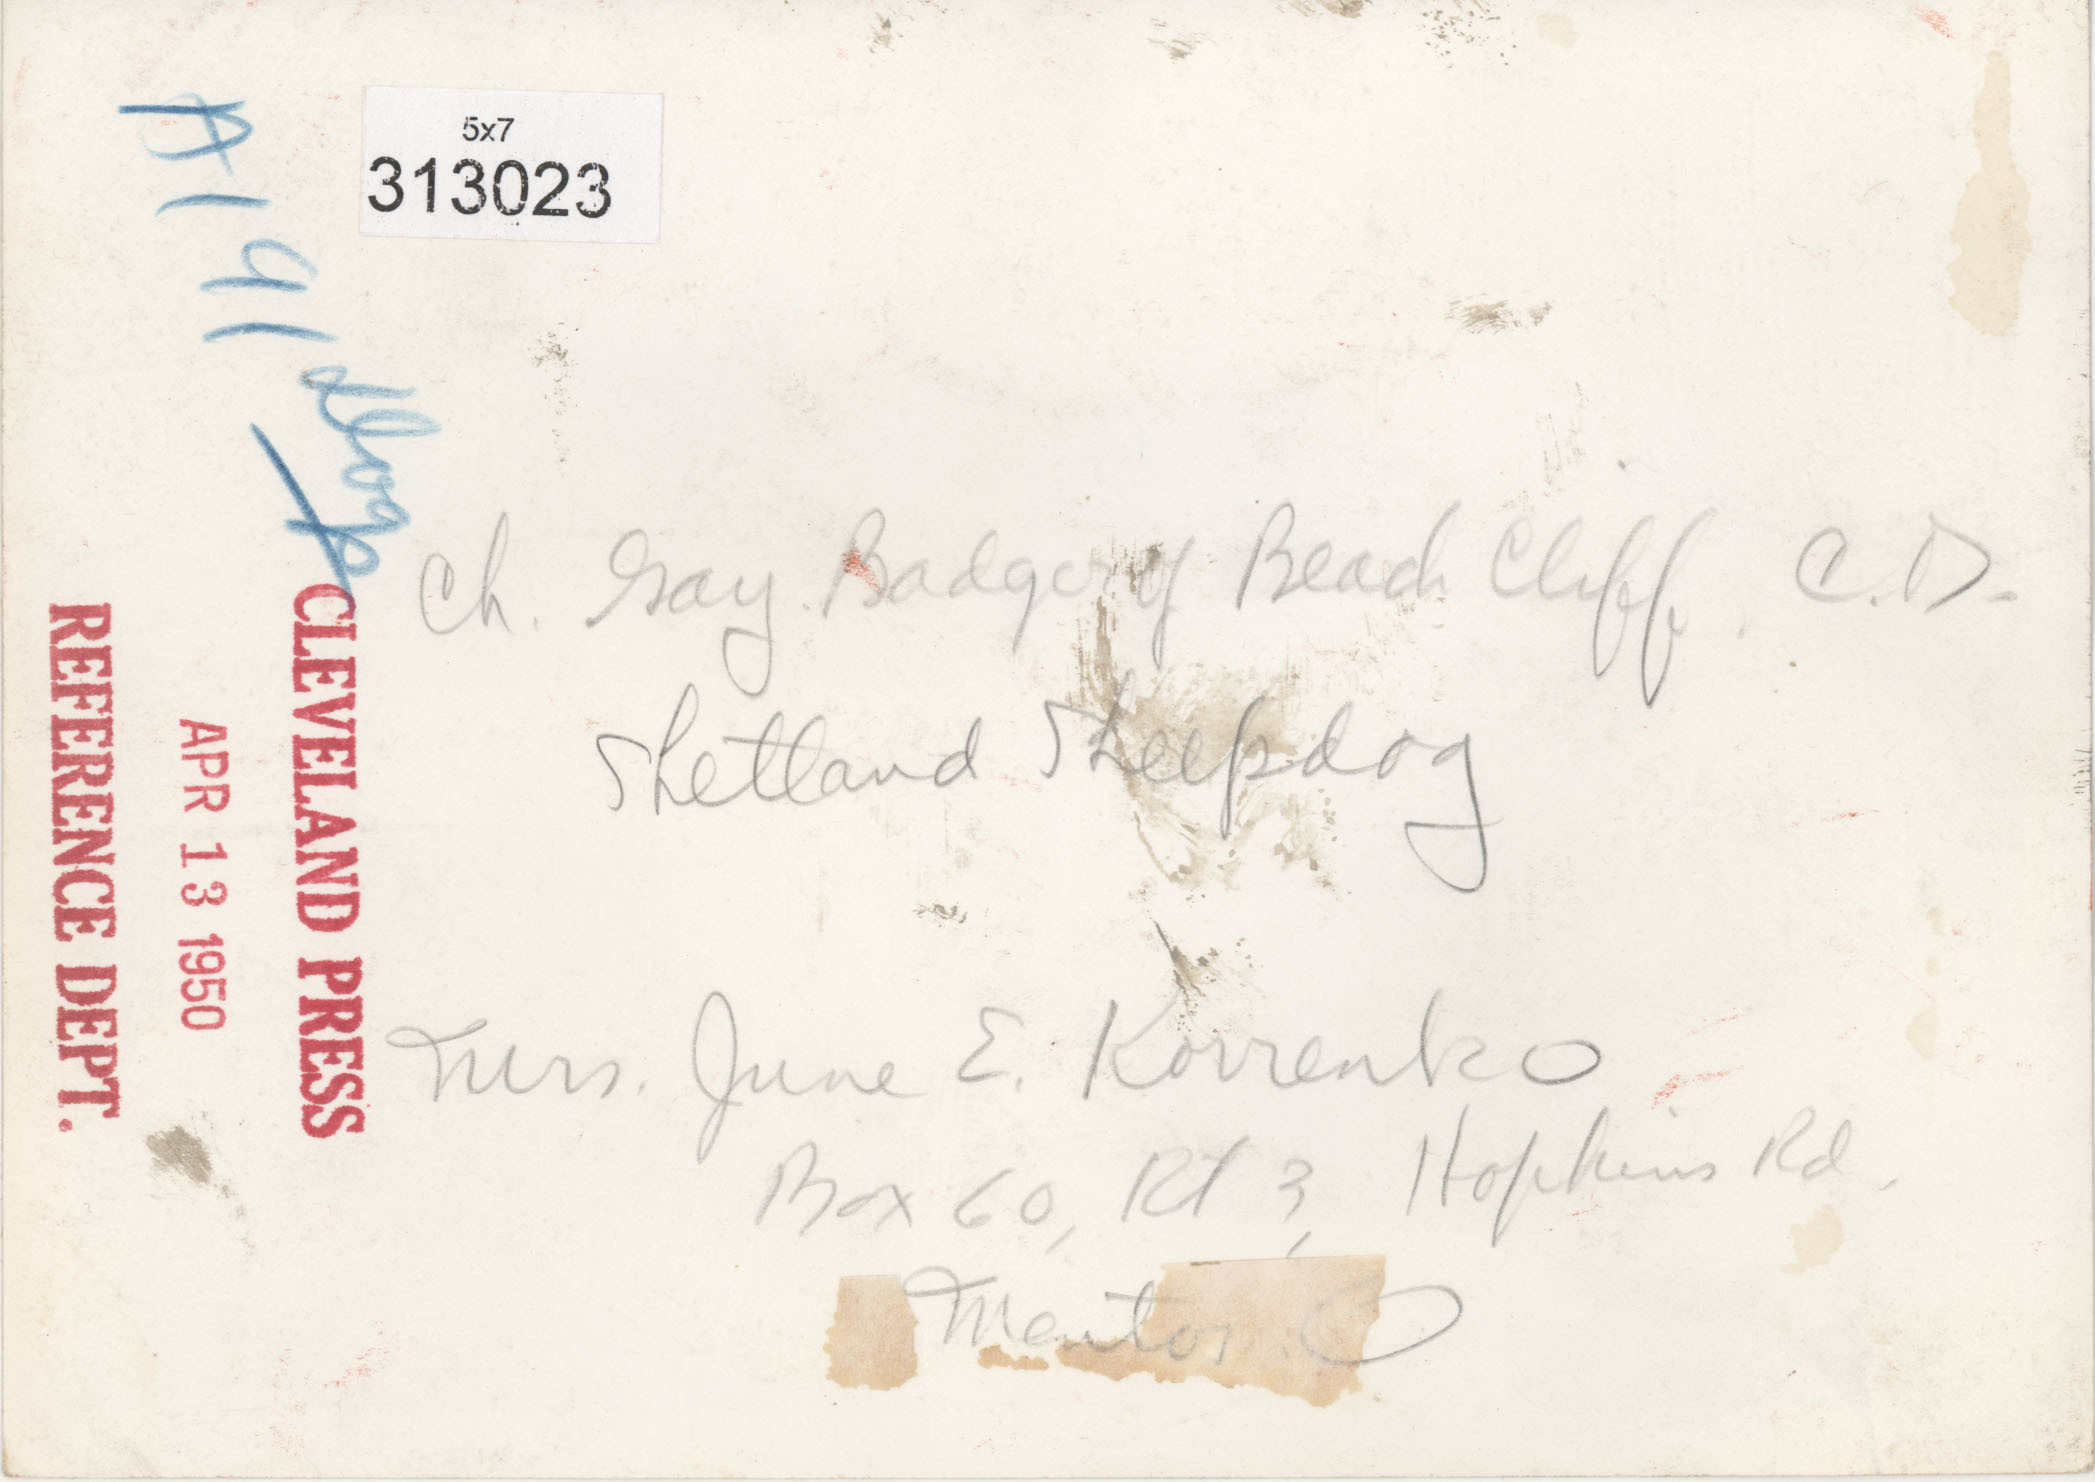 5x7
313023
A191 dog
CLEVELAND PRESS
APR 13 1950
REFERENCE DEPT.
Ch. Gay Badger of Beach Cliff, C.D.
Shetland Sheepdog
Mrs. June E. Korrenko
Box 60, Rt 3, Hopkins Rd.
Mentor, O